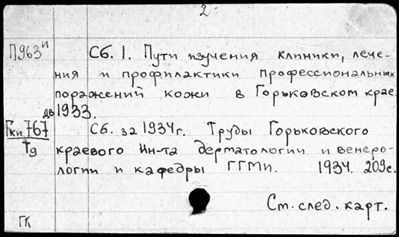 2
П963и Сб. 1. Пути изучения клиники, лече-
ния и профилактики профессиональных
поражений кожи в Горьковском крае
дв 1933.
Гки767 Сб. за 1934г. Труды Горьковского
Тд краевого Ин-та дерматологии и венеро-
логии и кафедры ГГМИ. 1934. 209с.
См. след. карт.
ГК